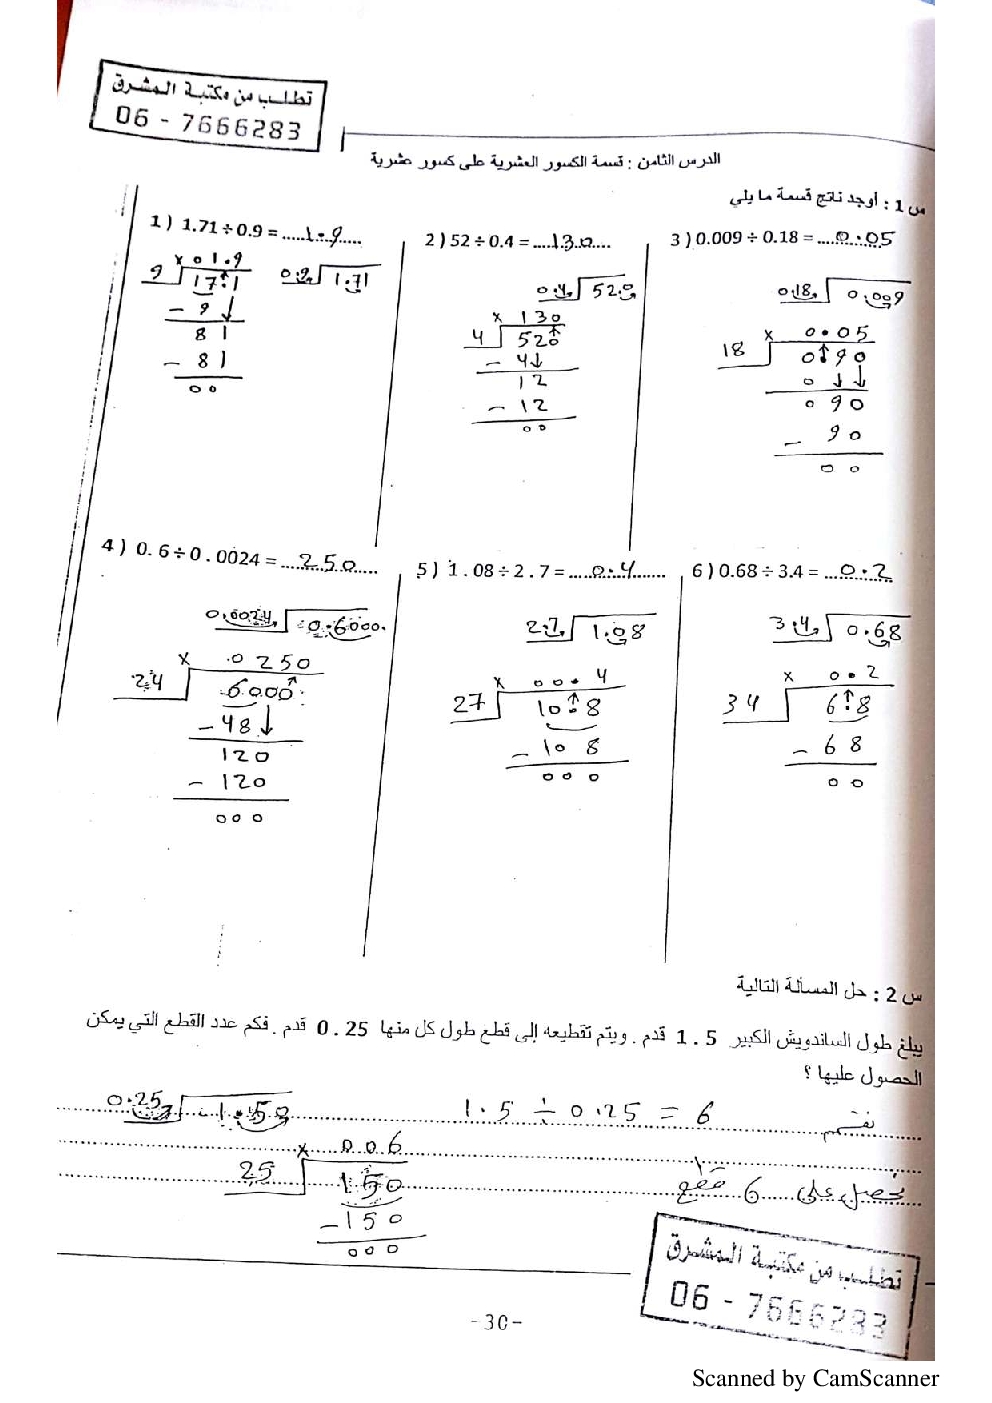 تطلب من مكتبة المشرق
06 - 7666283
الدرس الثامن : قسمة الكسور العشرية على كسور عشرية
س 1 : أوجد ناتج قسمة ما يلي
1 ) 1.71 ÷ 0.9 = .....1.9.....
9 01.9
171 0.9 1.71
- 9
81
- 81
00
2 ) 52 ÷ 0.4 = ....130....
0.4 52.0
× 130
4 520
- 4
12
- 12
00
3 ) 0.009 ÷ 0.18 = ....0.05
0.18 0.009
× 0.05
18 0090
0
090
- 90
00
4 ) 0. 6 ÷ 0 . 0024 = ....250....
0.0024 0.6000.
× 0250
24 6000
- 48
120
- 120
000
5 ) 1 . 08 ÷ 2 . 7 = ....0.4....
2.7 1.08
× 00.4
27 10.8
- 108
000
6 ) 0.68 ÷ 3.4 = ...0.2
3.4 0.68
× 0.2
34 6.8
- 68
00
س 2 : حل المسألة التالية
يبلغ طول الساندويش الكبير 5 . 1 قدم . ويتم تقطيعه إلى قطع طول كل منها 25 . 0 قدم . فكم عدد القطع التي يمكن
الحصول عليها ؟
نقسم 1.5 ÷ 0.25 = 6
0.25 1.50
× 006
25 150
- 150
000
نحصل على 6 قطع
تطلب من مكتبة المشرق
06 - 7666283
-30-
Scanned by CamScanner